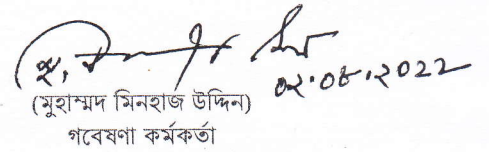 ০২.০৮.২০২২
(মুহাম্মদ মিনহাজ উদ্দিন)
গবেষণা কর্মকর্তা